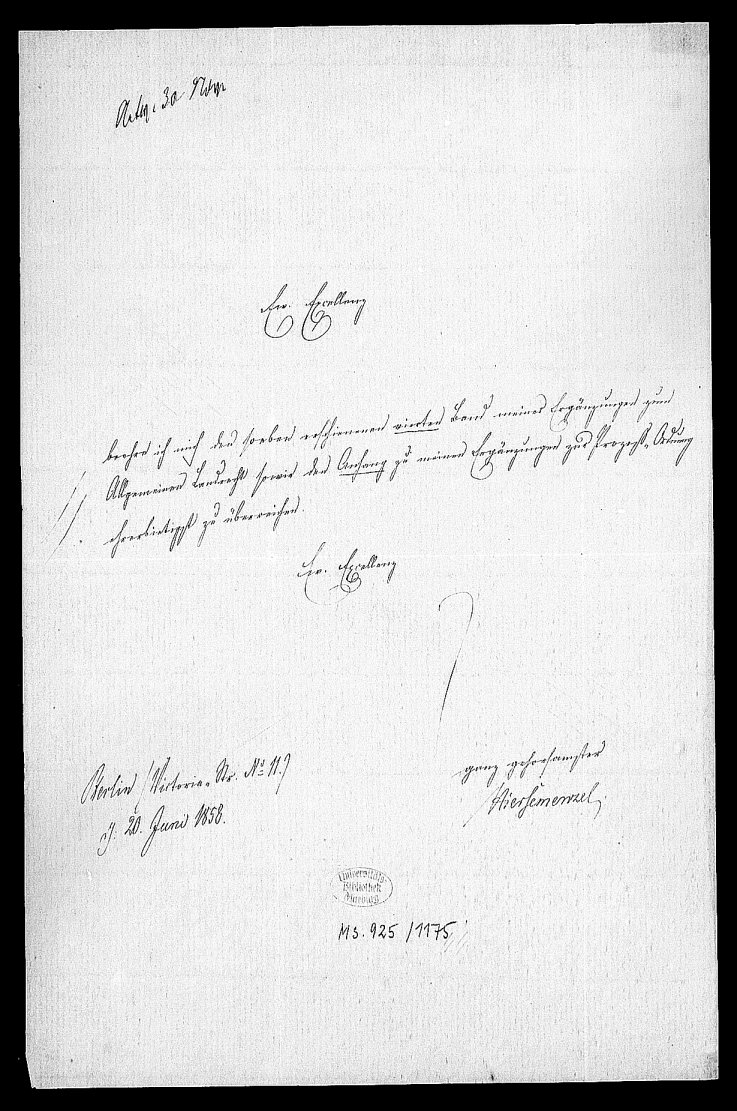 Antw. 30 Nov
Ew. Excellenz
beehre ich mich den soeben erschienenen vierten Band meiner Ergänzungen zum
Allgemeinen Landrecht sowie den Anhang zu meinen Ergänzungen zur Prozeß-Ordnung
ehrerbietigst zu überreichen.
Ew. Excellenz
ganz gehorsamster
Hiersemenzel
Berlin (Victoria-Str. No 11.)
d. 20. Juni 1858.
Universitäts-
Bibliothek
Marburg
Ms. 925/1175